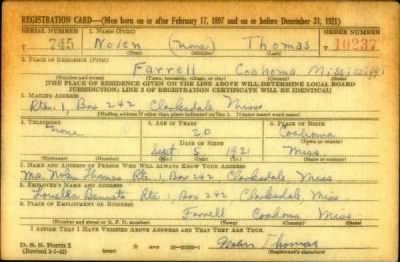 REGISTRATION CARD—(Men born on or after February 17, 1897 and on or before December 31, 1921)
SERIAL NUMBER 1. NAME (Print) ORDER NUMBER
T 745 Nolen (None) Thomas T 10237
(First) (Middle) (Last)
2. PLACE OF RESIDENCE (Print)
Farrell Coahoma Mississippi
(Number and street) (Town, township, village, or city) (County) (State)
[THE PLACE OF RESIDENCE GIVEN ON THE LINE ABOVE WILL DETERMINE LOCAL BOARD
JURISDICTION; LINE 2 OF REGISTRATION CERTIFICATE WILL BE IDENTICAL]
3. MAILING ADDRESS
Rte. 1, Box 242 Clarksdale, Miss
[Mailing address if other than place indicated on line 2. If same insert word same]
4. TELEPHONE 5. AGE IN YEARS 6. PLACE OF BIRTH
None 20 Coahoma
DATE OF BIRTH (Town or county)
Sept 5 1921 Miss.
(Exchange) (Number) (Mo.) (Day) (Yr.) (State or country)
7. NAME AND ADDRESS OF PERSON WHO WILL ALWAYS KNOW YOUR ADDRESS
Nolen Thomas Rte. 1, Box 242 Clarksdale, Miss
8. EMPLOYER'S NAME AND ADDRESS
Louella Bennett Rte. 1, Box 242 Clarksdale, Miss
9. PLACE OF EMPLOYMENT OR BUSINESS
Farrell Coahoma Miss
(Number and street or R. F. D. number) (Town) (County) (State)
I AFFIRM THAT I HAVE VERIFIED ABOVE ANSWERS AND THAT THEY ARE TRUE.
D. S. S. Form 1
(Revised 1-1-42) (over) Nolen Thomas
(Registrant's signature)